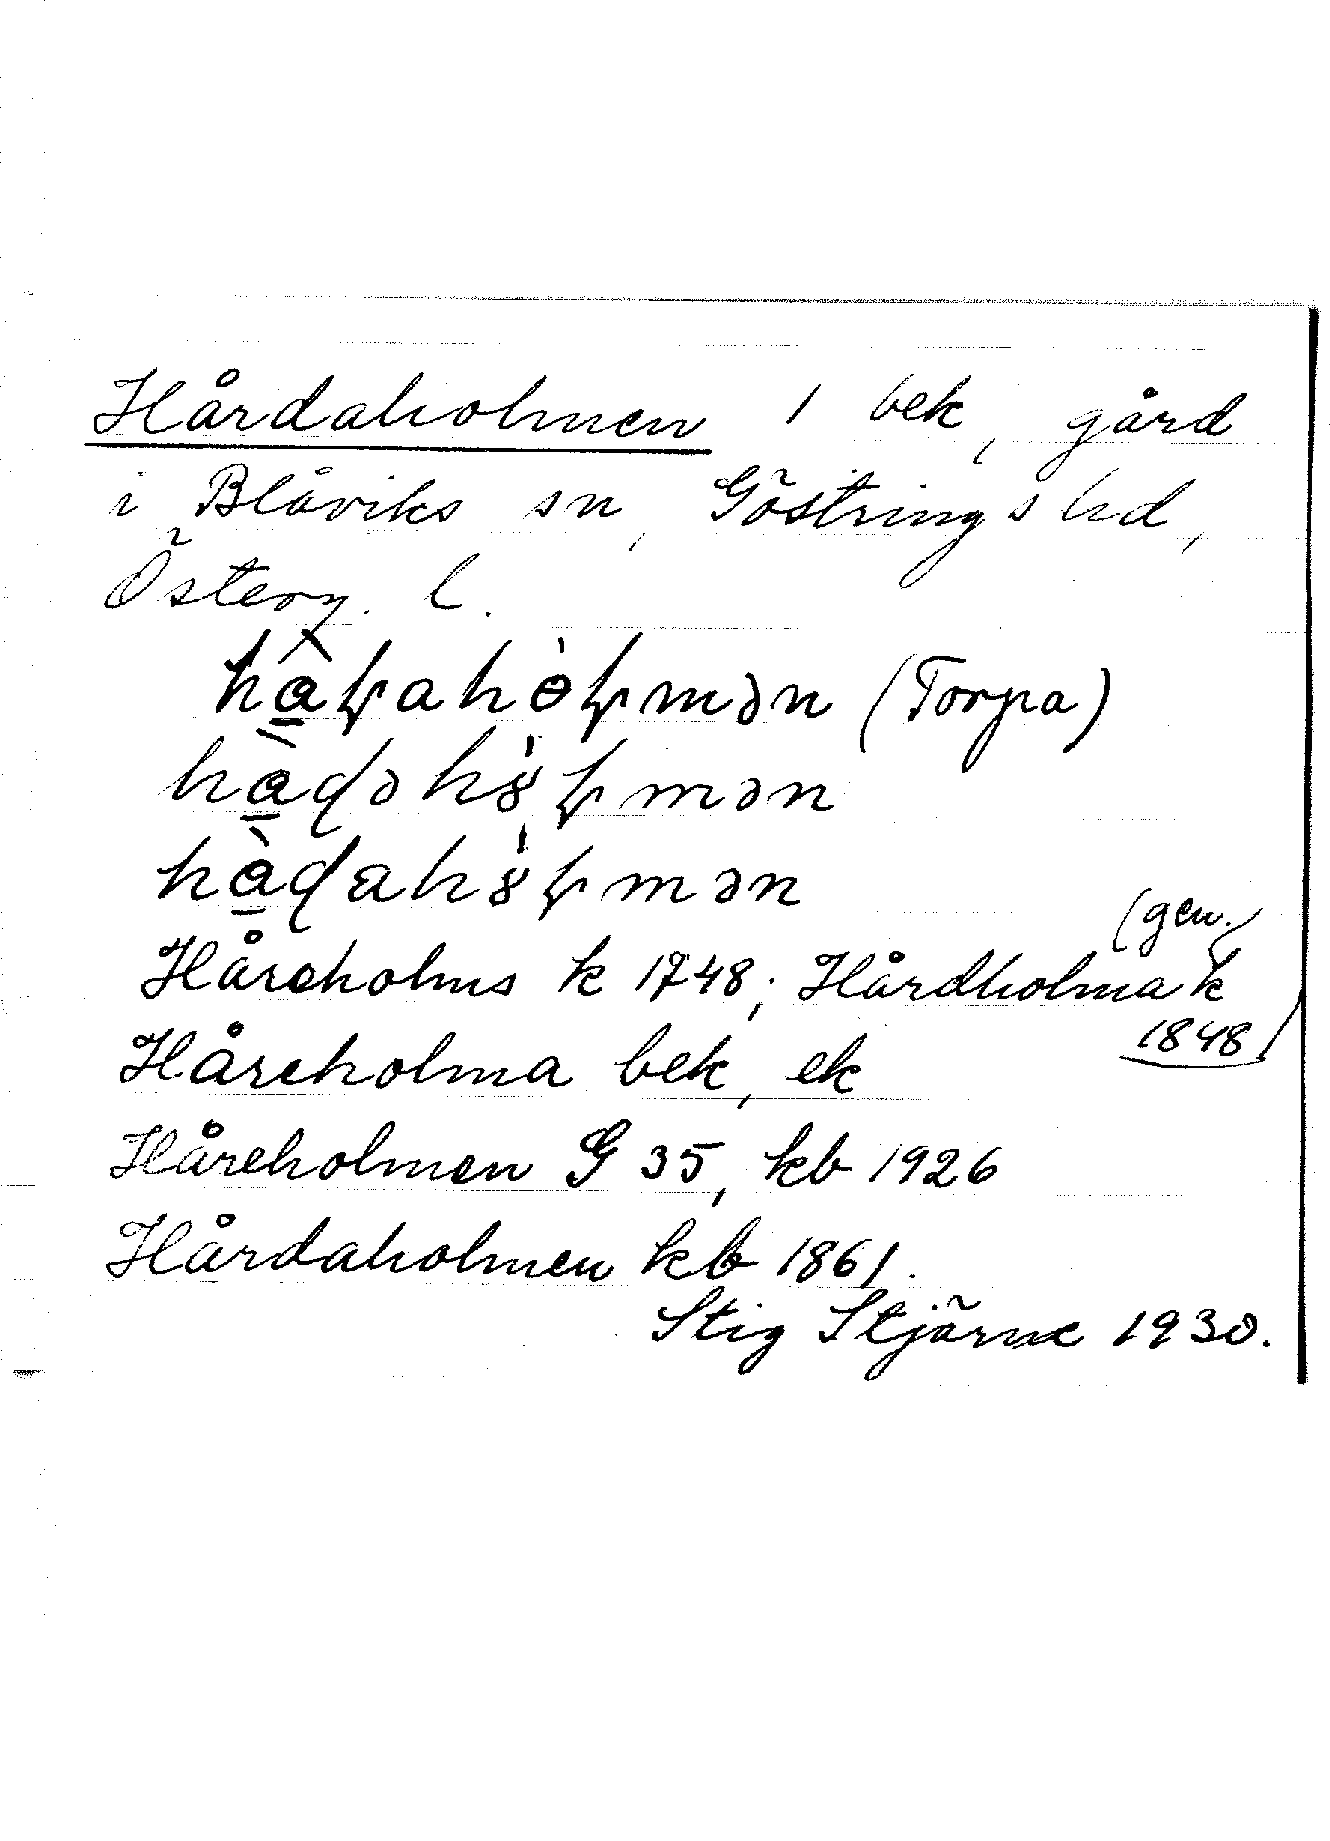 Hårdaholmen 1 bek, gård
i Blåviks sn, Göstrings hd,
Österg. l.
(Torpa)
(gen.)
Håreholms k 1748; Hårdholma k
1848
Håreholma bek, ek
Håreholmen G 35, kb 1926
Hårdaholmen kb 1861.
Stig Stjärne 1930.